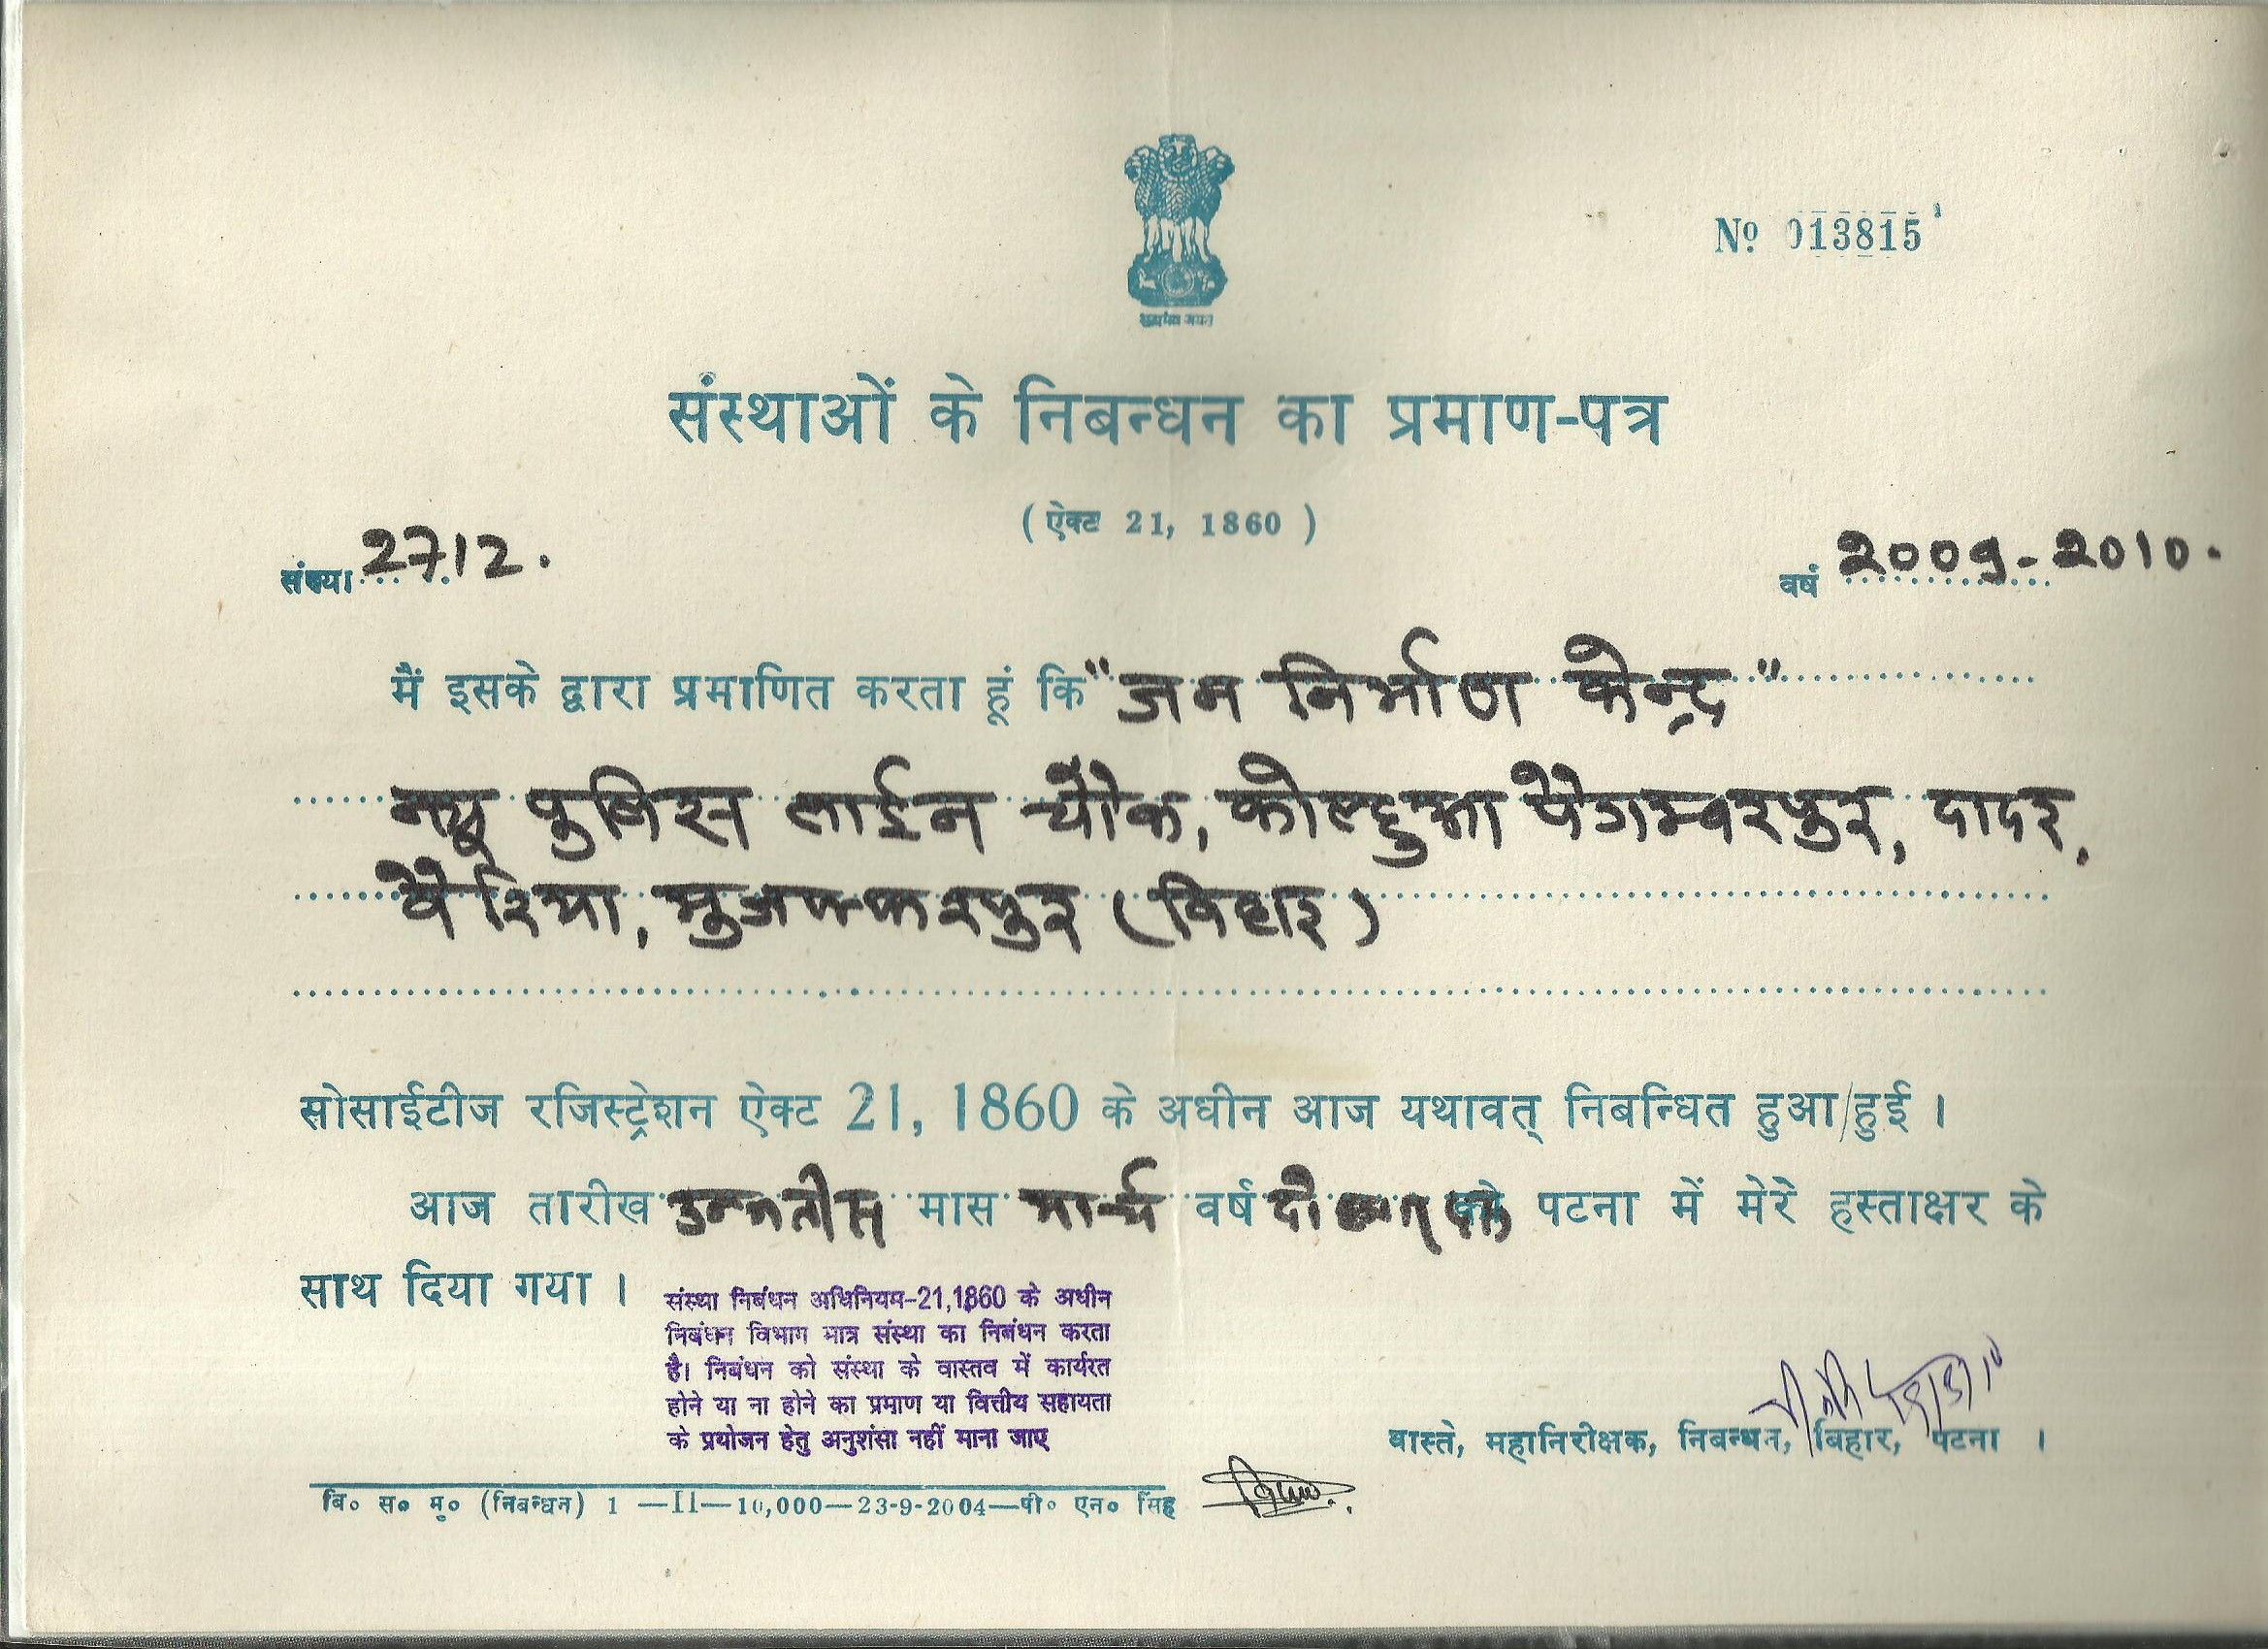 सत्यमेव जयते
No 013815
संस्थाओं के निबन्धन का प्रमाण-पत्र
( ऐक्ट 21, 1860 )
संख्या 2712. वर्ष 2009-2010.
मैं इसके द्वारा प्रमाणित करता हूं कि "जन निर्माण केन्द्र"
न्यू पुलिस लाईन चौक, कोल्हुआ पैगम्बरपुर, दादर,
बैरिया, मुजफ्फरपुर (बिहार)
सोसाईटीज रजिस्ट्रेशन ऐक्ट 21, 1860 के अधीन आज यथावत् निबन्धित हुआ/हुई ।
आज तारीख उनतीस मास मार्च वर्ष दो को पटना में मेरे हस्ताक्षर के
साथ दिया गया ।
संस्था निबंधन अधिनियम-21,1860 के अधीन
निबंधन विभाग मात्र संस्था का निबंधन करता
है। निबंधन को संस्था के वास्तव में कार्यरत
होने या ना होने का प्रमाण या वित्तीय सहायता
के प्रयोजन हेतु अनुशंसा नहीं माना जाए
वास्ते, महानिरीक्षक, निबन्धन, बिहार, पटना ।
बि० स० मु० (निबन्धन) 1 —II—10,000—23-9-2004—पी० एन० सिंह